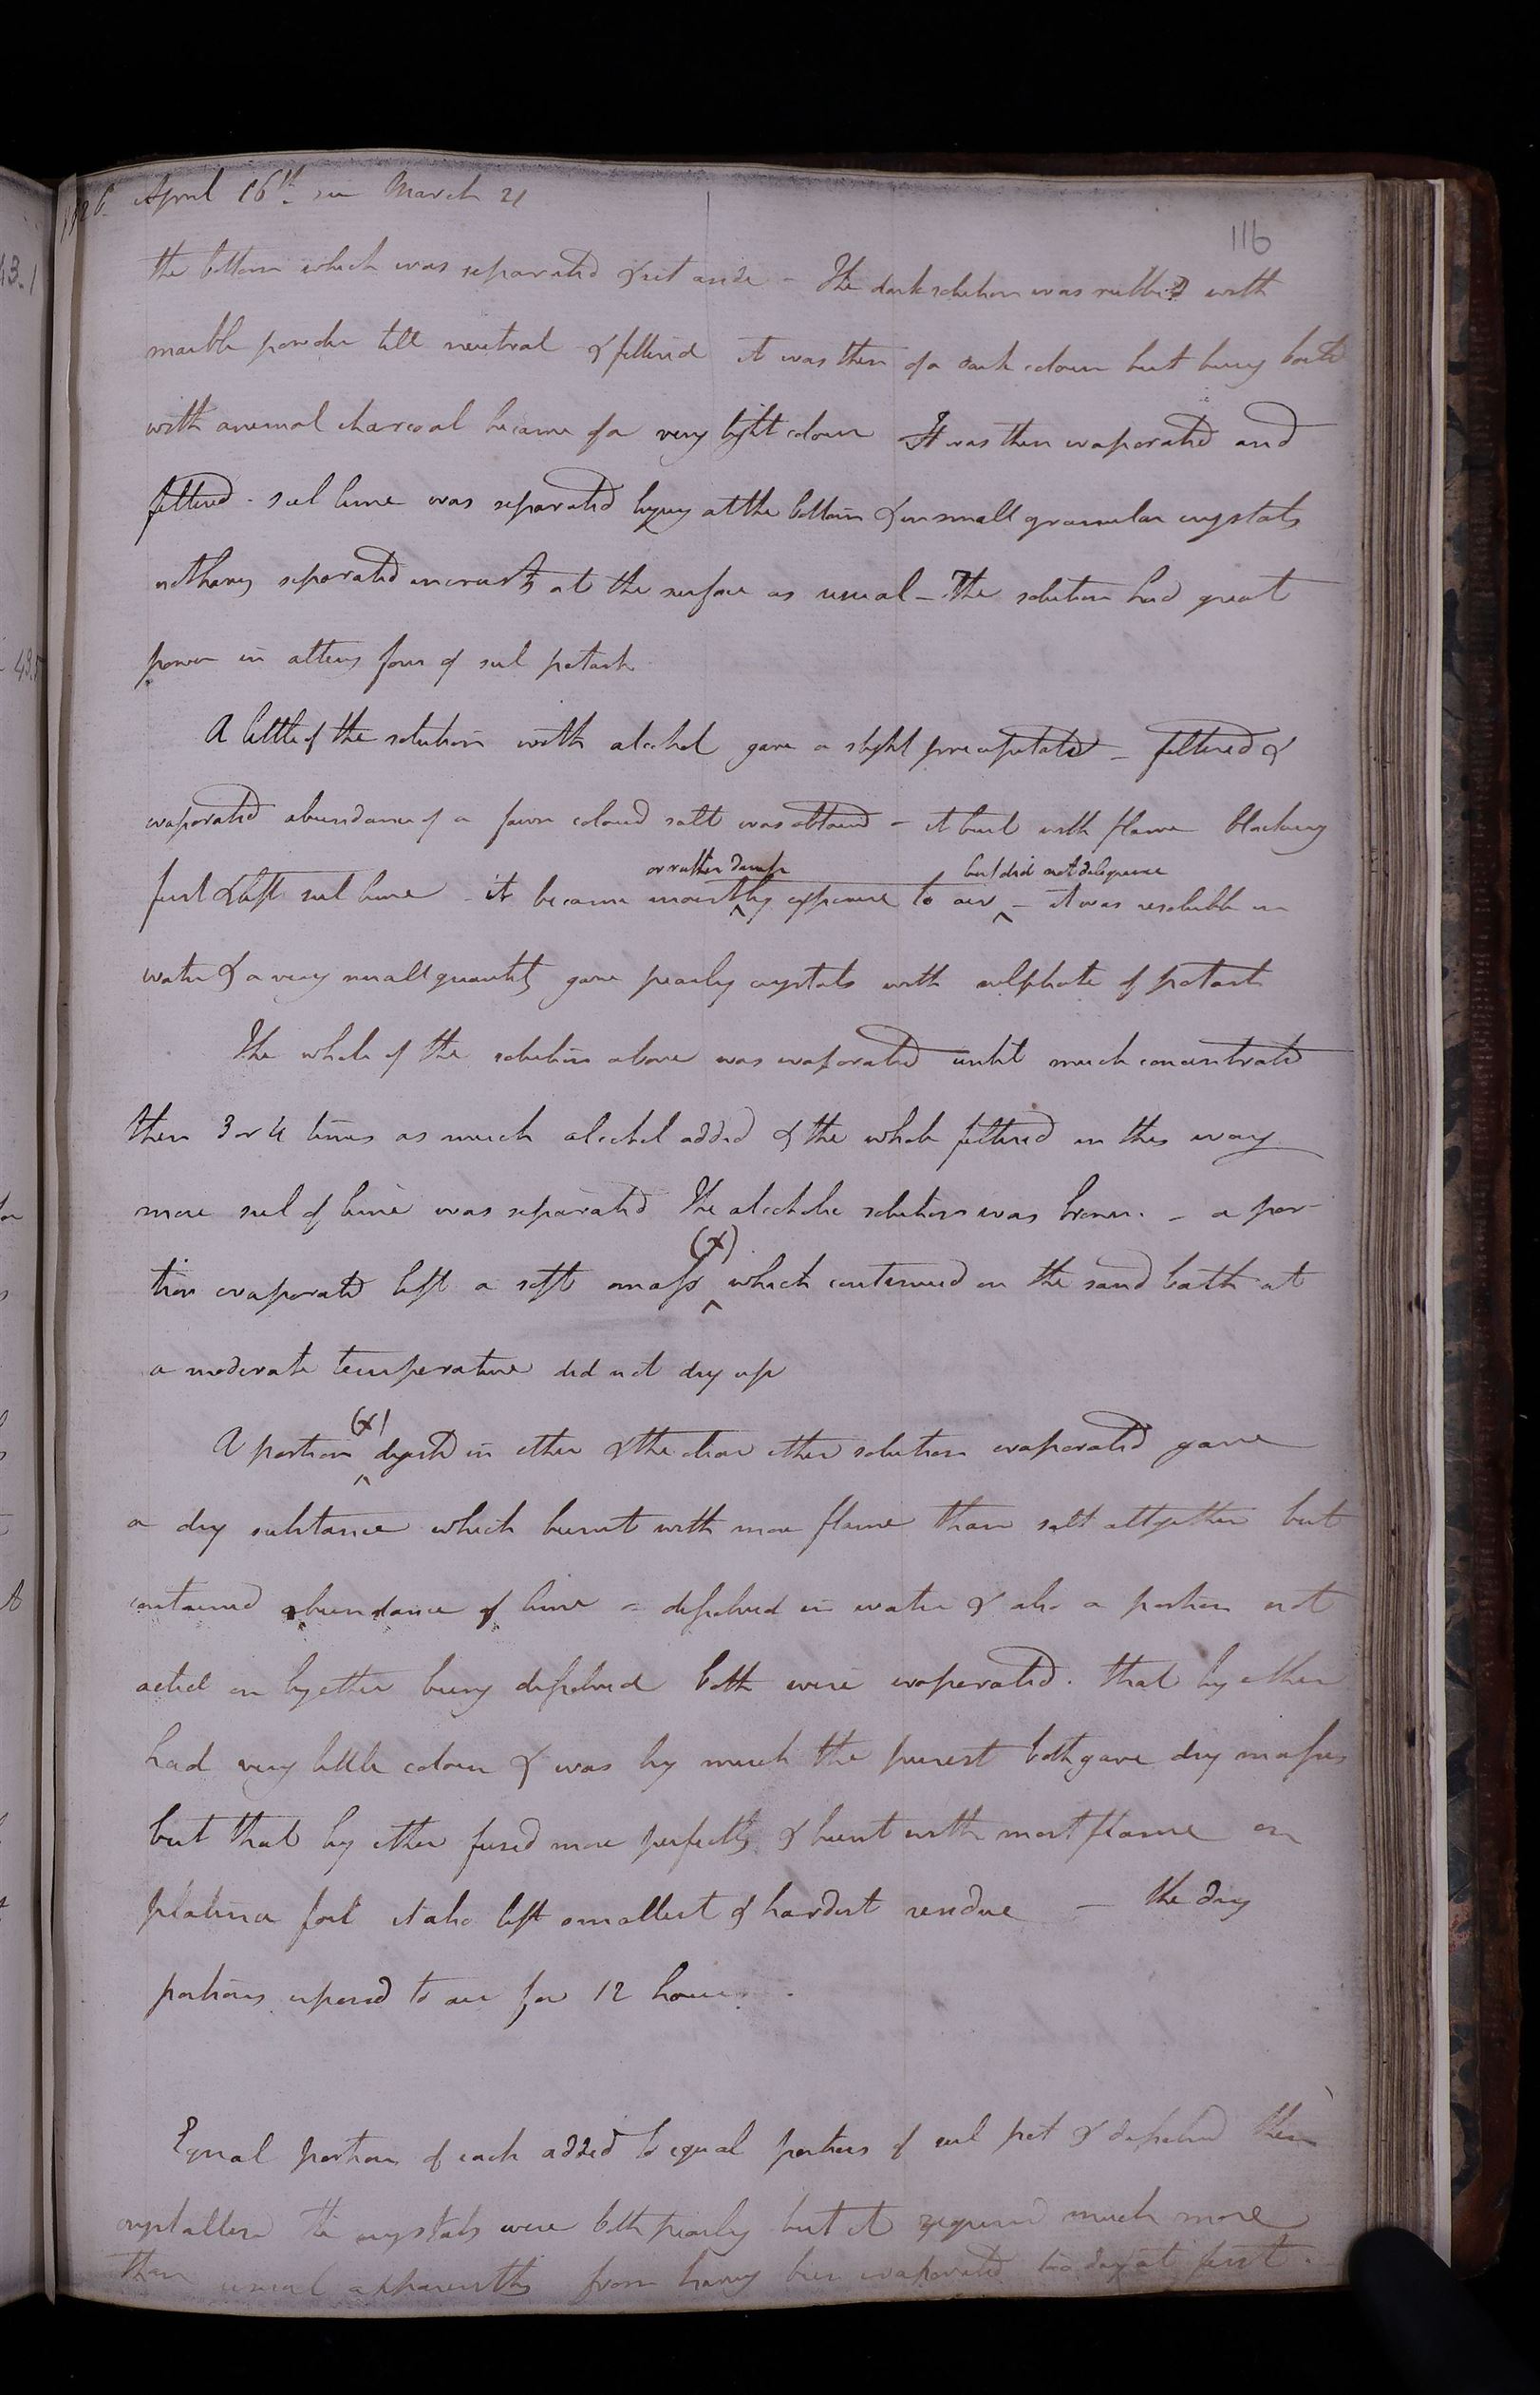 1826. April 16th. see March 21
116
the bottom which was separated & set aside - The dark solution was rubbed with
marble powder till neutral & filtered it was then of a dark colour but being boiled
with animal charcoal became of a very light colour It was then evaporated and
filtered. sul lime was separated lying at the bottom & in small granular crystals
not having separated in crusts at the surface as usual - The solution had great
power in altering form of sul potash
A little of the solution with alcohol gave a slight precipitate - filtered &
evaporated abundance of a fawn coloured salt was obtained - it burnt with flame blackening
or rather damp but did not deliquesce
first & left sul lime - it became moist by exposure to air - it was resoluble in
water & a very small quantity gave pearly crystals with sulphate of potash
The whole of the solution above was evaporated until much concentrated
then 3 or 4 times as much alcohol added & the whole filtered in this way
more sul of lime was separated The alcoholic solution was brown. - a por-
(x)
tion evaporated left a soft mass which continued on the sand bath at
a moderate temperature did not dry up
(x)
A portion digested in ether & the clear ether solution evaporated gave
a dry substance which burnt with more flame than salt altogether but
contained abundance of lime - dissolved in water & also a portion not
acted on by ether being dissolved both were evaporated. that by ether
had very little colour & was by much the purest both gave dry masses
but that by ether fused more perfectly & burnt with most flame on
platina foil it also left smallest & hardest residue - the dry
portions exposed to air for 12 hours.
Equal portions of each added to equal portions of sul pot & dissolved then
crystallized the crystals were both pearly but it required much more
than usual apparently from having been evaporated too dry at first.
43.1